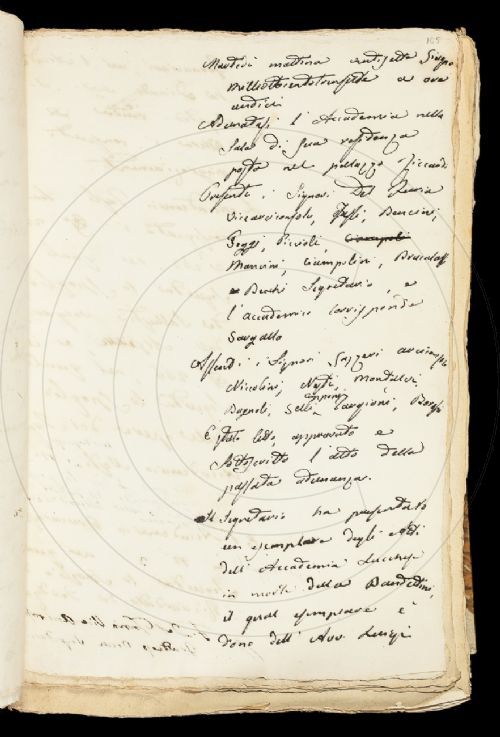 165
Martedì mattina ventisette Giugno
milleottocentotrentasette a ore
undici
Adunatasi l'Accademia nella
Sala di sua residenza
posta nel palazzo Riccardi
Presenti i Signori Del Furia
Vicearciconsolo, Fossi, Bencini,
Poggi, Piccioli, Ciampoli
Mancini, Ciampolini, Brucalassi
e Becchi Segretario, e
l'accademico corrisponde
Gargallo
Assenti i Signori Gazzeri arciconsolo
Nicolini, Nesti, Montalvi,
Bagnoli, Sella, Targioni,
È stato letto, approvato e
sottoscritto l'atto della
passata adunanza.
Il Segretario ha presentato
un esemplare degli atti
dell'Accademia Lucchese
in morte della Bandettini,
il quale esemplare è
dono dell'Avv. Luigi